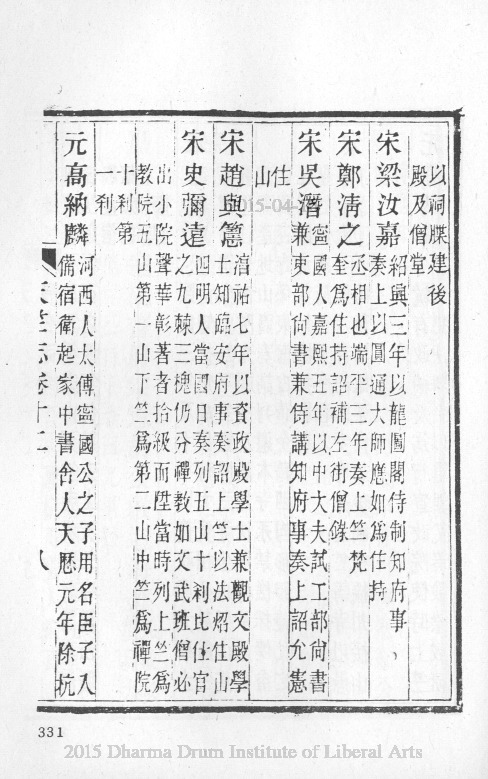 以祠牒建後
殿及僧堂
宋梁汝嘉
紹興三年以龍圖閣侍制知府事、
奏上以圓通大師應如爲住持
宋鄭清之
丞相也端平三年奏上竺梵
奎爲住持詔補左街僧錄
宋吳潛
寧國人嘉熙五年以中大夫試工部尚書
兼吏部尚書兼侍講知府事奏上詔允憲
住
山
宋趙與
淯祐七年以資政殿學士兼觀文殿學
士知臨安府事詔上竺以法炤住山
宋史彌遠
四明人當國日奏列五山十刹比仕官
之九棘三槐仍分禪教如文武班僧必
出小院聲華彰著者拾級而陞當時列上竺爲
教院五山第一山下竺爲第二山中竺爲禪院
十刹第
一刹
元高納麟
河西人太傅寧國公之子用名臣子入
備宿衛起家中書舍人天歷元年除杭
天竺志卷十二
八
331
2015 Dharma Drum Institute of Liberal Arts